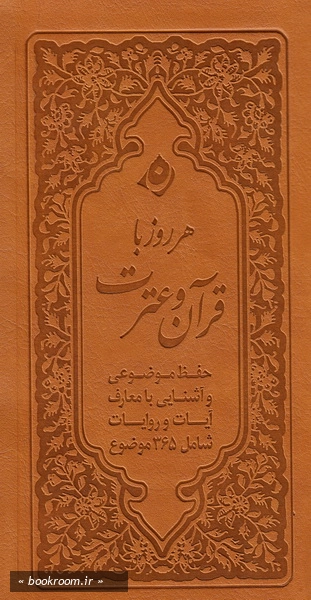 هر روز با
قرآن و عترت
حفظ موضوعی
و آشنایی با معارف
آیات و روایات
شامل ۳۶۵ موضوع
« bookroom.ir »